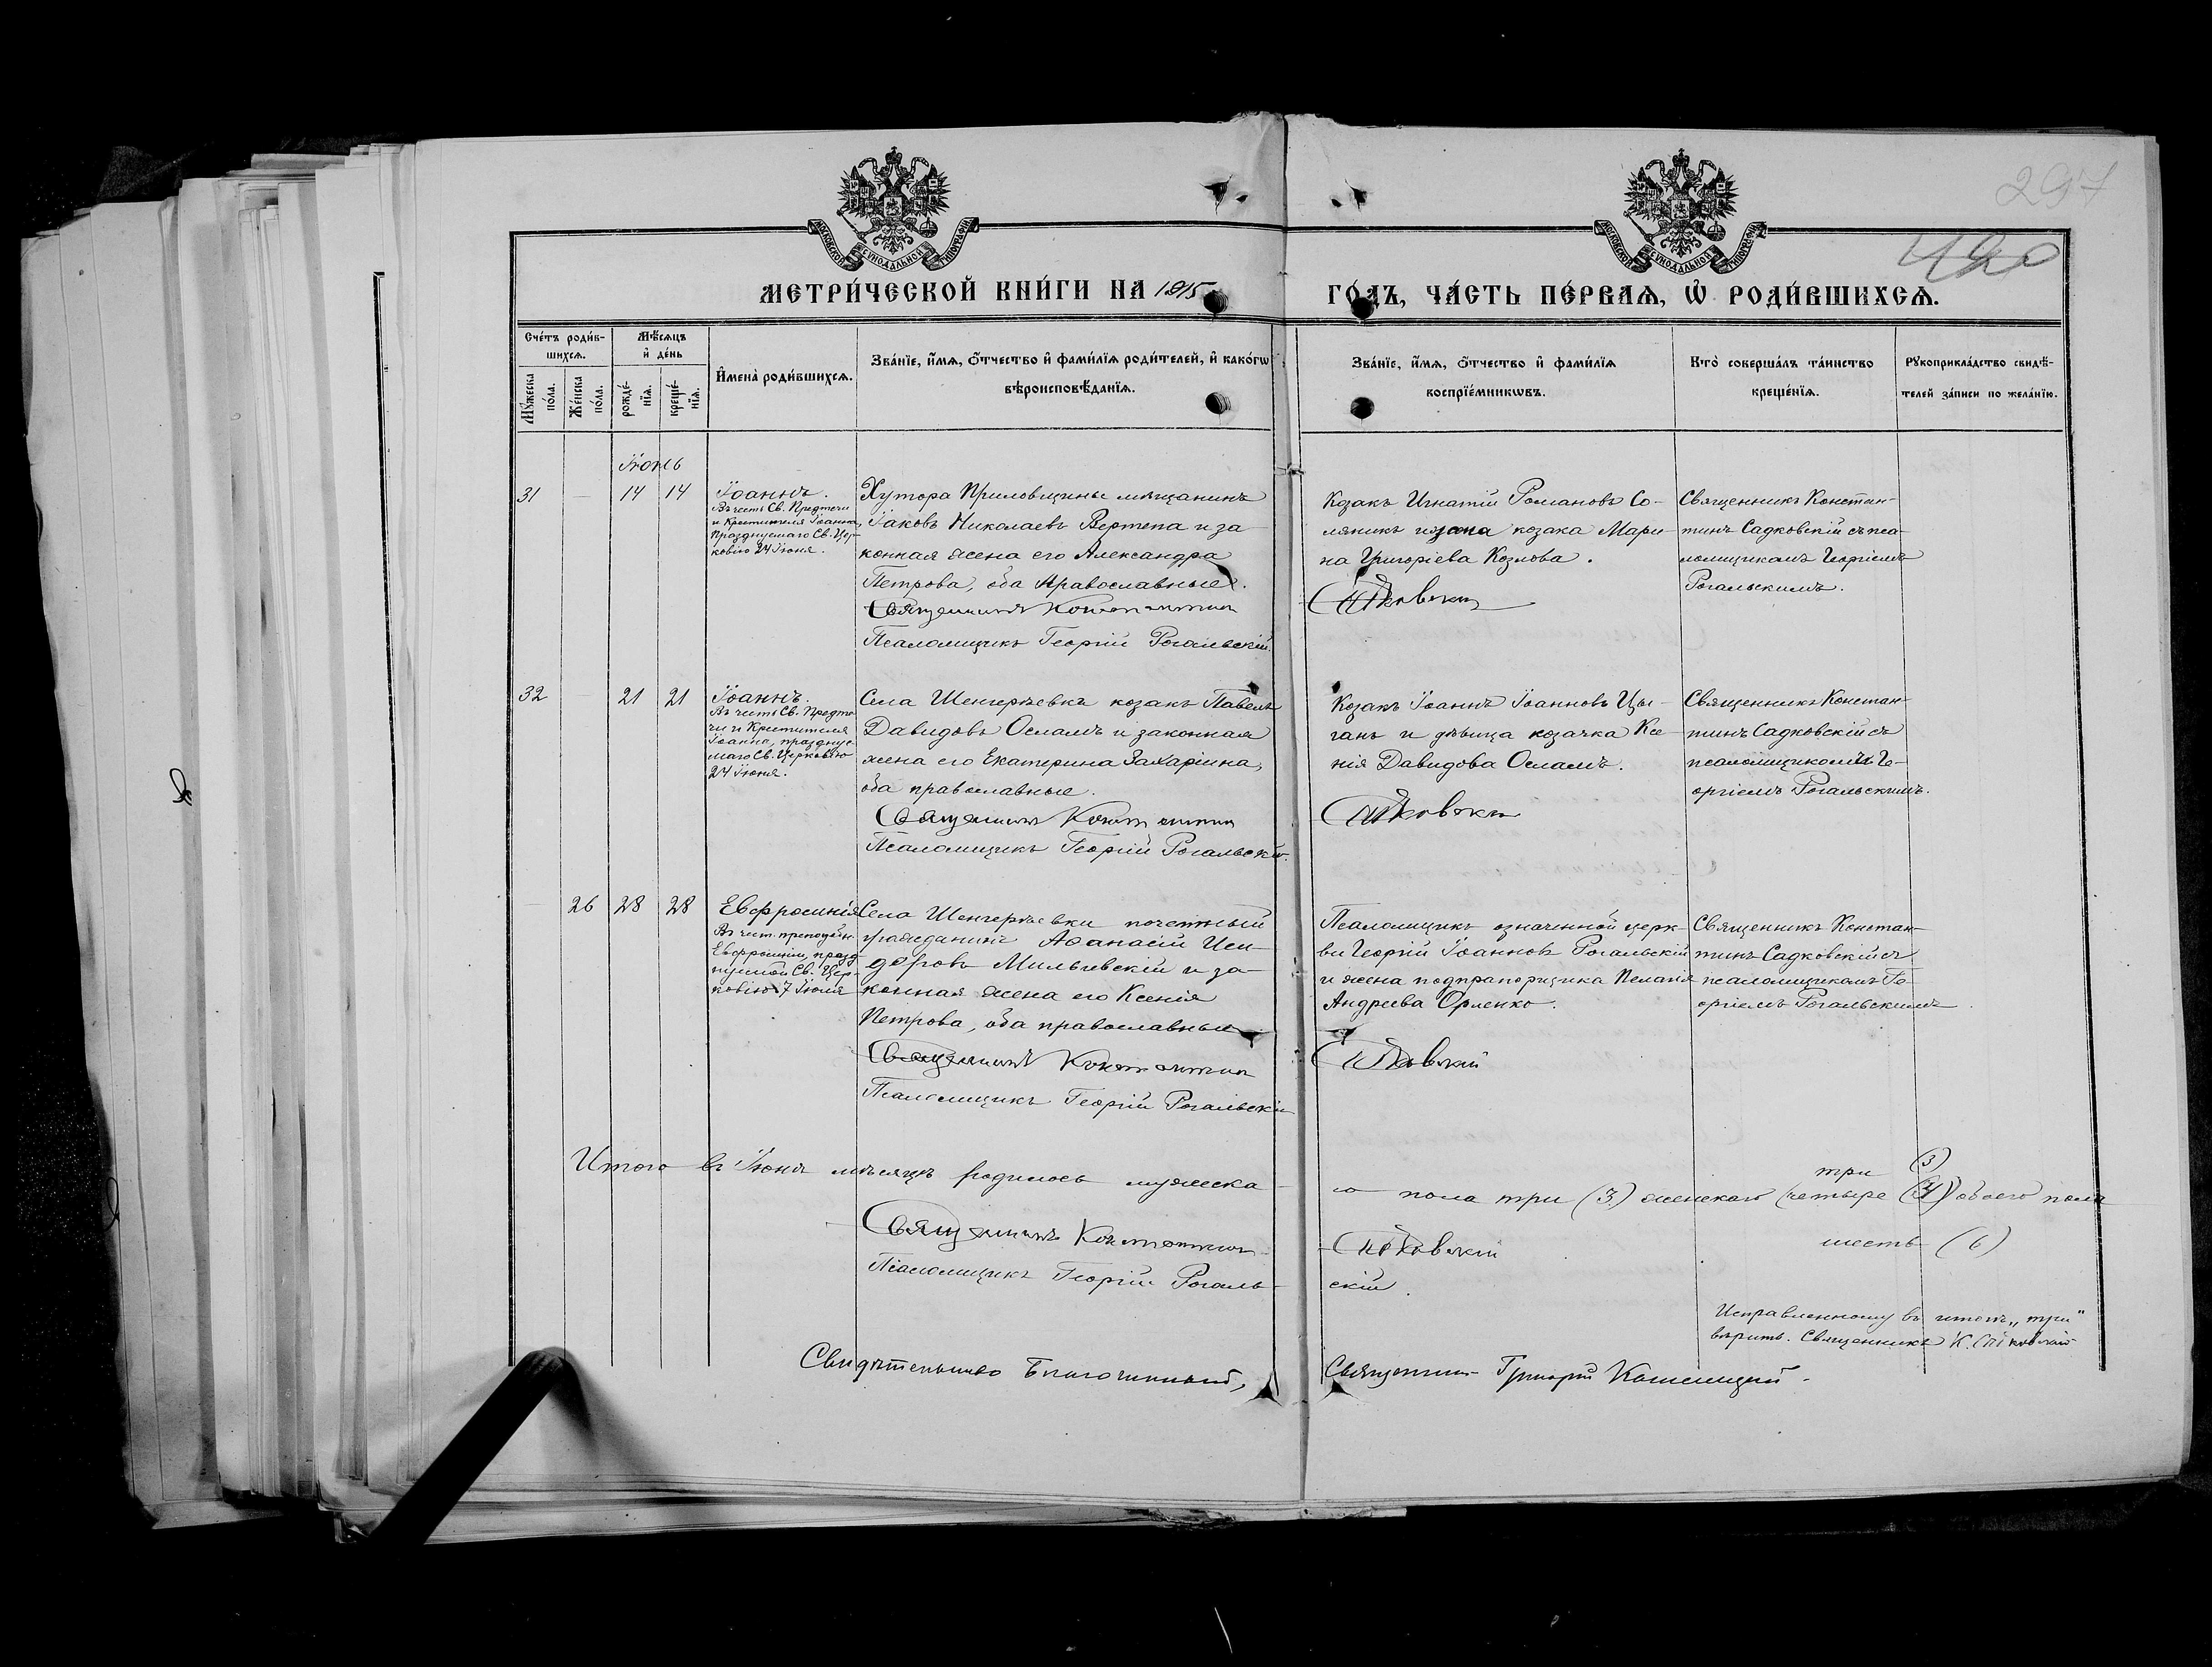 297
420
МОСКОВСКОЙ СѴНОДАЛЬНОЙ ТИПОГРАФІИ
МОСКОВСКОЙ СѴНОДАЛЬНОЙ ТИПОГРАФІИ
МЕТРИ́ЧЕСКОЙ КНИ́ГИ НА 1915
ГО́ДЪ, ЧА́СТЬ ПЕ́РВАѦ, Ѡ҆ РОДИ́ВШИХСѦ.
Сче́тъ роди́в-
шихсѧ.
Мꙋ́жеска
по́ла.
Же́нска
по́ла.
Мѣ́сѧцъ
и҆ де́нь
рожде́-
нїѧ.
креще́-
нїѧ.
И҆мена̀ роди́вшихсѧ.
Зва́нїе, и҆́мѧ, ѻ҆́тчество и҆ фами́лїѧ роди́телей, и҆ како́гѡ
вѣроисповѣ́данїѧ.
Зва́нїе, и҆́мѧ, ѻ҆́тчество и҆ фами́лїѧ
воспрїе́мникѡвъ.
Кто̀ соверша́лъ та́инство
креще́нїѧ.
Рꙋкоприкла́дство свидѣ́-
телей за́писи по жела́нїю.
Іюнь
31
14 14
Іоаннъ.
Въ честь Св. Предтечи
и Крестителя Іоанна,
празднуемаго Св. Цер-
ковію 24 Іюня.
Хутора Приловщины мѣщанинъ
Іаковъ Николаевъ Вертепа и за-
конная жена его Александра
Петрова, оба православные.
Священникъ Константинъ
Псаломщикъ Георгій Рогальскій.
Козакъ Игнатій Романовъ Со-
ляникъ и жена козака Мари-
на Григоріева Козлова.
Садковскій
Священникъ Констан-
тинъ Садковскій съ пса-
ломщикомъ Георгіемъ
Рогальскимъ.
32
21 21
Іоаннъ.
Въ честь Св. Предте-
чи и Крестителя
Іоанна, праздну-
емаго Св. Церковію
24 Іюня.
Села Шенгерѣевки козакъ Павелъ
Давидовъ Осламъ и законная
жена его Екатерина Захаріина,
оба православные.
Священникъ Константинъ
Псаломщикъ Георгій Рогальскій.
Козакъ Іоаннъ Іоанновъ Цы-
ганъ и дѣвица козачка Ксе-
нія Давидова Осламъ.
Садковскій
Священникъ Констан-
тинъ Садковскій съ
псаломщикомъ Ге-
оргіемъ Рогальскимъ.
26 28 28
Евфросинія
Въ чест. преподобн.
Евфросиніи, празд-
нуемой Св. Цер-
ковію 7 Іюля
Села Шенгерѣевки почетный
гражданинъ Аѳанасій Иси-
доровъ Мильчевскій и за-
конная жена его Ксенія
Петрова, оба православные
Священникъ Константинъ
Псаломщикъ Георгій Рогальскій
Псаломщикъ означенной церк-
ви Георгій Іоанновъ Рогальскій
и жена подпрапорщика Пелагія
Андреева Орленко.
Садковскій
Священникъ Констан-
тинъ Садковскій съ
псаломщикомъ Ге-
оргіемъ Рогальскимъ
Итого въ Іюнѣ мѣсяцѣ родилось мужеска-
го пола три (3) женскаго (четыре (4)) обоего пола
три (3)
шесть (6)
Священникъ Константинъ
Садковскій
Псаломщикъ Георгій Рогаль-
скій.
Исправленному въ итогѣ „три“
вѣрить. Священникъ К. Садковскій
Свидѣтельство Благочинный,
Священникъ Григорій